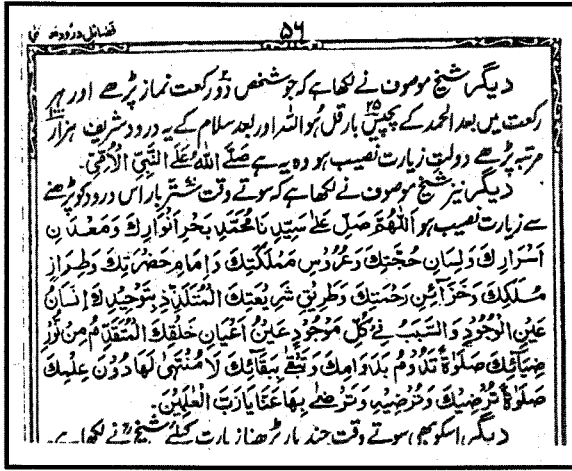 فضائل درود شریف
۵۶
دیگر شیخ موصوف نے لکھا ہے کہ جو شخص دو رکعت نماز پڑھے اور ہر
رکعت میں بعد الحمد کے پچیس ۲۵ بار قل ہو اللہ اور بعد سلام کے یہ درود شریف ہزار
مرتبہ پڑھے دولت زیارت نصیب ہو وہ یہ ہے صَلَّى اللهُ عَلَى النَّبِيِّ الْأُمِّيِّ۔
دیگر نیز شیخ موصوف نے لکھا ہے کہ سوتے وقت ستر بار اس درود کو پڑھنے
سے زیارت نصیب ہو اَللّٰهُمَّ صَلِّ عَلٰى سَيِّدِنَا مُحَمَّدٍ بَحْرِ اَنْوَارِكَ وَمَعْدَنِ
اَسْرَارِكَ وَلِسَانِ حُجَّتِكَ وَعَرُوْسِ مَمْلَكَتِكَ وَاِمَامِ حَضْرَتِكَ وَطِرَازِ
مُلْكِكَ وَخَزَآئِنِ رَحْمَتِكَ وَطَرِيْقِ شَرِيْعَتِكَ الْمُتَلَذِّذِ بِتَوْحِيْدِكَ اِنْسَانِ
عَيْنِ الْوُجُوْدِ وَالسَّبَبِ فِيْ كُلِّ مَوْجُوْدٍ عَيْنِ اَعْيَانِ خَلْقِكَ الْمُتَقَدِّمِ مِنْ نُّوْرِ
ضِيَآئِكَ صَلٰوةً تَدُوْمُ بِدَوَامِكَ وَتَبْقٰى بِبَقَآئِكَ لَا مُنْتَهٰى لَهَا دُوْنَ عِلْمِكَ
صَلٰوةً تُرْضِيْكَ وَتُرْضِيْهِ وَتَرْضٰى بِهَا عَنَّا يَا رَبَّ الْعٰلَمِيْنَ۔
دیگر اسکو بھی سوتے وقت چند بار پڑھنا زیارت کیلئے شیخ نے لکھا ہے۔